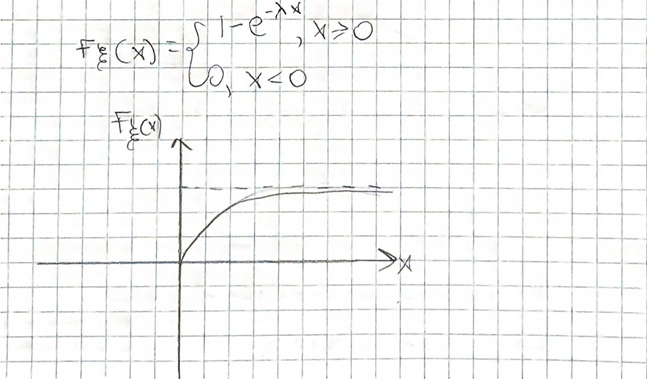 F_ξ(x) = { 1-e^{-λx}, x≥0
0, x<0
F_ξ(x)
x